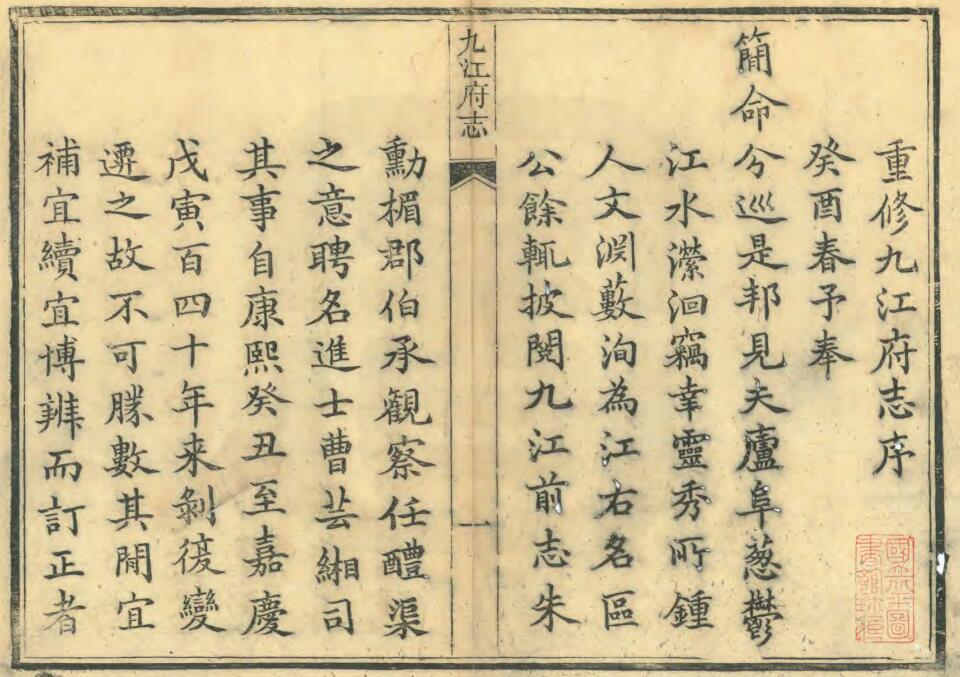 重修九江府志序
癸酉春予奉
簡命分巡是邦見夫廬阜葱鬱
江水瀠洄竊幸靈秀所鍾
人文淵藪洵為江右名區
公餘輒披閱九江前志朱
九江府志
一
勳楣郡伯承觀察任醴渠
之意聘名進士曹芸緗司
其事自康熙癸丑至嘉慶
戊寅百四十年来剝復變
遷之故不可勝數其閒宜
補宜續宜博辨而訂正者